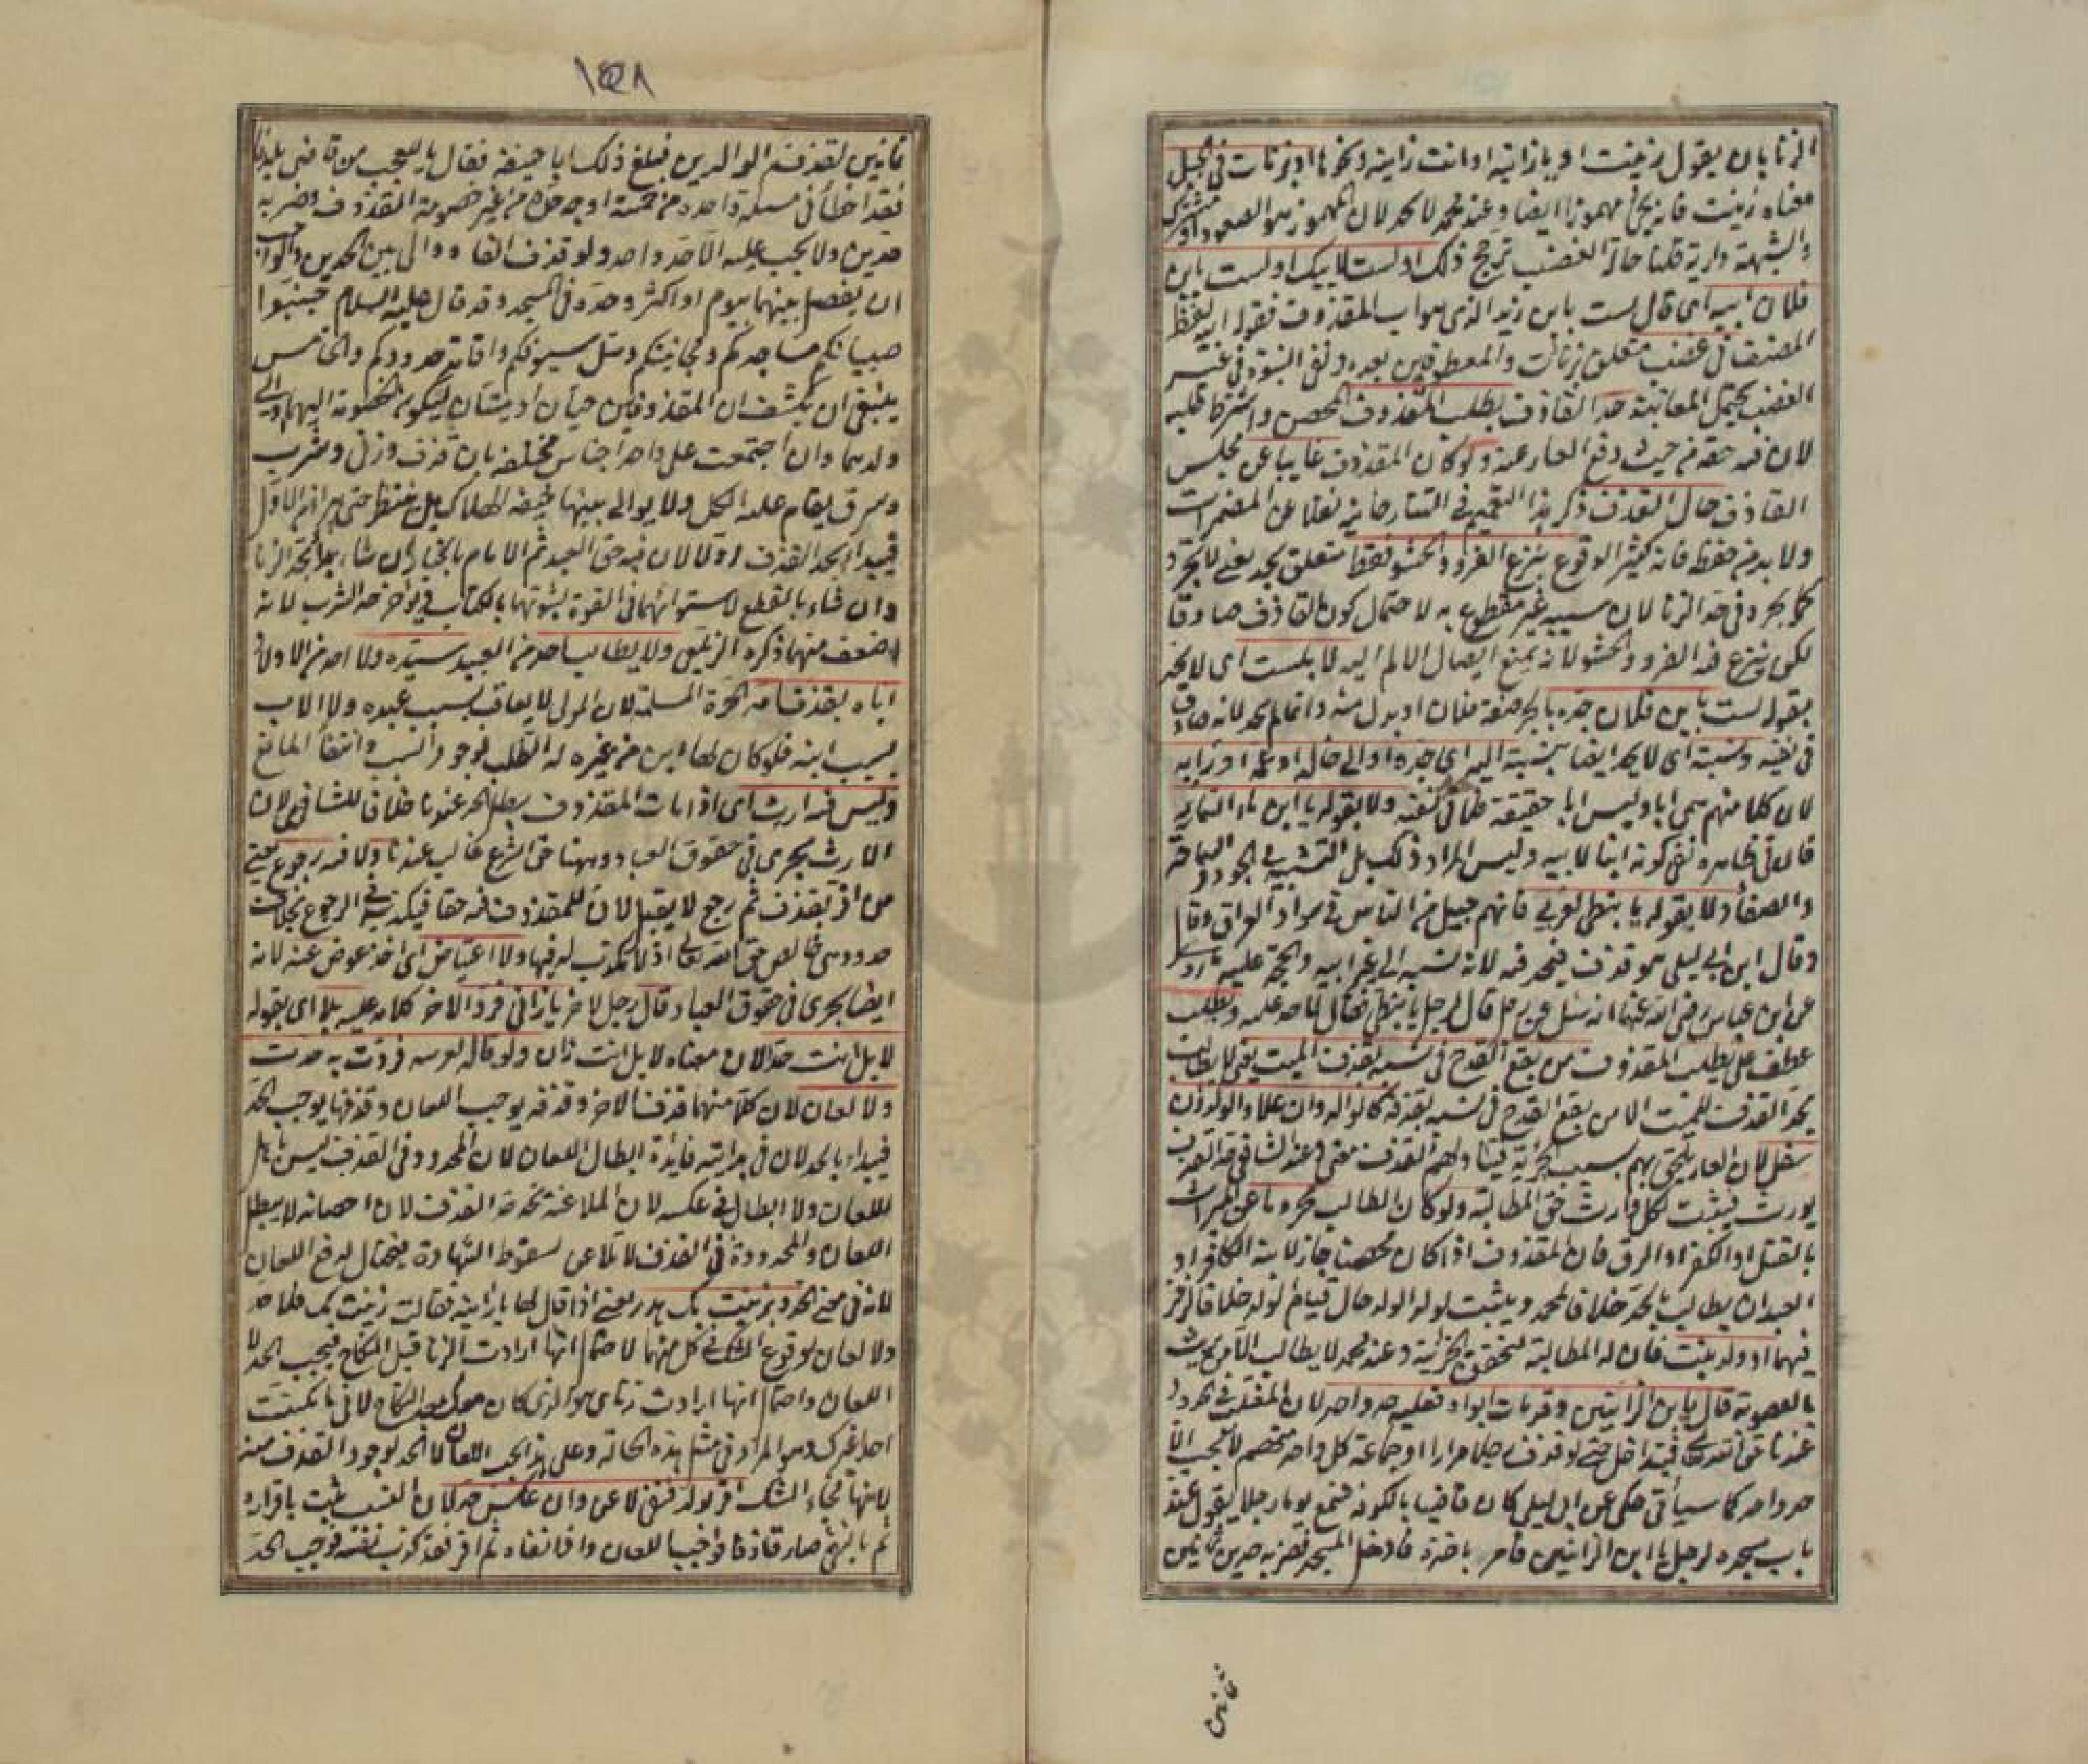 الزنا بان يقول زنيت او يا زانية او انت زانية ونحوها او زنات في الجبل
معناه زنيت فانه يجئ مهموزا ايضا وعند محمد لا يحد لان المهموز هو الصعود او مشترك
والشبهة دارية قلنا حالة الغضب ترجح ذلك او لست لابيك او لست بابن
فلان ابيه اي قال لست بابن زيد الذي هو اب المقذوف فقوله ابيه لفظ
المصنف في غضب متعلق بزنات والمعطوفين بعده ونفي البنوة في غير
الغضب يحتمل المعاتبة حد القاذف بطلب المقذوف المحصن واشترط طلبه
لان فيه حقه من حيث دفع العار عنه ولو كان المقذوف غايبا عن مجلس
القاذف حال القذف ذكر هذا التعميم في التتارخانية نقلا عن المضمرات
ولا بد من حفظه فانه كثير الوقوع بنزع الفرو والحشو فقط متعلق بحد يعني لا يجرد
كما يجرد في حد الزنا لان سببه غير مقطوع به لاحتمال كون القاذف صادقا
لكن ينزع عنه الفرو والحشو لانه يمنع ايصال الالم اليه لا بلست اي لا يحد
بقوله لست بابن فلان جده بالجر صفة فلان او بدل منه وانما لم يحد لانه صادق
في نفيه ونسبته اي لا يحد ايضا بنسبته اليه اي جده او الى خاله او عمه او رابه
لان كلا منهم سمي ابا وليس ابا حقيقة ولا بقوله يا ابن ماء السماء
فان في ظاهره نفي كونه ابنا لابيه وليس المراد ذلك بل التشبيه في الجود والسماحة
والصفاء ولا بقوله يا نبطي لعربي فانهم جيل من الناس في سواد العراق
وقال ابن ابي ليلى هو قذف فيحد فيه لانه نسبه الى غير ابيه والحجة عليه
عن ابن عباس رضي الله عنهما انه سئل عن رجل قال لرجل يا نبطي فقال لا حد عليه وبطلب
عطف على بطلب المقذوف من يقع القدح في نسبه بقذف الميت يعني لا يطالب
بحد القذف للميت الا من يقع القدح في نسبه بقذفه كالوالد وان علا والولد وان
سفل لان العار يلتحق بهم بسبب الجزئية فيتناولهم القذف معنى وعند الشافعي حد القذف
يورث فيثبت لكل وارث حق المطالبة ولو كان الطالب محروما عن الميراث
بالقتل او الكفر او الرق فان المقذوف اذا كان محصنا جاز لابنه الكافر او
العبد ان يطالب بالحد خلافا لمحمد ويثبت لولد الولد حال قيام الولد خلافا لزفر
فيهما او ولد بنت فان له المطالبة لتحقق الجزئية وعند محمد لا يطالب الا من يرث
بالعصوبة قال يا ابن الزانيين وقد مات ابواه فعليه حد واحد لان المغلب في الحدود
عندنا حق الله تعالى فيتداخل حتى لو قذف رجلا مرارا او جماعة كل واحد لا يجب الا
حد واحد كما سيأتي حكي عن ابن ابي ليلى كان قاضيا بالكوفة فسمع يوما رجلا يقول عند
باب مسجده لرجل يا ابن الزانيين فامر باخذه فادخل المسجد فضربه حدين ثمانين
ثمانين
١٥٨
ثمانين لقذفه الوالدين فبلغ ذلك ابا حنيفة فقال يا للعجب من قاضي بلدنا
فقد اخطأ في مسئلة واحدة من خمسة اوجه حده من غير خصومة المقذوف وضربه
حدين ولا يجب عليه الا حد واحد ولو قذف الفا ووالى بين الحدين والواجب
ان يفصل بينهما بيوم او اكثر وحده في المسجد وقد قال عليه السلام جنبوا
صبيانكم مساجدكم ومجانينكم وسل سيوفكم واقامة حدودكم والخامس
ينبغي ان يكشف ان المقذوفين حيان او ميتان ليكون الخصومة اليهما او الى
ولدهما وان اجتمعت على واحد اجناس مختلفة بان قذف وزنى وشرب
وسرق يقام عليه الكل ولا يوالى بينها خيفة الهلاك بل ينتظر حتى يبرأ من الاول
فيبدأ بحد القذف اولا لان فيه حق العبد ثم الامام بالخيار ان شاء بدأ بحد الزنا
وان شاء بالقطع لاستوائهما في القوة لثبوتهما بالكتاب ويؤخر حد الشرب لانه
اضعف منهما ذكره الزيلعي ولا يطالب احد من العبيد سيده ولا احد من الاولاد
اباه بقذف امه الحرة المسلمة لان المولى لا يعاقب بسبب عبده ولا الاب
بسبب ابنه فلو كان لها ابن من غيره له الطلب لوجود السبب وانتفاء المانع
وليس فيه ارث اي اذا مات المقذوف بطل الحد عندنا خلافا للشافعي لان
الارث يجري في حقوق العباد وههنا حق الشرع غالب عندنا ولا فيه رجوع يعني
من اقر بقذف ثم رجع لا يقبل لان للمقذوف فيه حقا فيكذبه في الرجوع بخلاف
حدود هي خالص حق الله تعالى اذ لا مكذب له فيها ولا اعتياض اي اخذ عوض عنه لانه
ايضا يجري في حقوق العباد قال رجل لاخر يا زاني فرد الاخر كلامه عليه بلا اي بقوله
لا بل انت حدا لان معناه لا بل انت زان ولو قاله لعرسه فردت به حدت
ولا لعان لان كلا منهما قذف الاخر وقذفه يوجب اللعان وقذفها يوجب الحد
فيبدأ بالحد لان في بدايته فايدة ابطال اللعان لان المحدود في القذف ليس باهل
للعان ولا ابطال في عكسه لان الملاعنة تحد حد القذف لان احصانه لا يبطل
اللعان والمحدودة في القذف لا تلاعن لسقوط الشهادة فيحتال لدفع اللعان
لانه في معنى الحد وبزنيت بك هدر يعني اذا قال لها يا زانية فقالت زنيت بك فلا حد
ولا لعان لوقوع الشك في كل منهما لاحتمال انها ارادت الزنا قبل النكاح فيجب الحد لا
اللعان واحتمال انها ارادت زناي هو الذي كان معك بعد النكاح لاني ما مكنت
احدا غيرك وهو المراد في مثل هذه الحالة وعلى هذا يجب اللعان لا الحد لوجود القذف منه
لا منها فجاء الشك اقر بولد فنفى لاعن وان عكس حد لان النسب ثبت باقراره
ثم بالنفي صار قاذفا فوجب اللعان واذا نفاه ثم اقر فقد كذب نفسه فوجب الحد